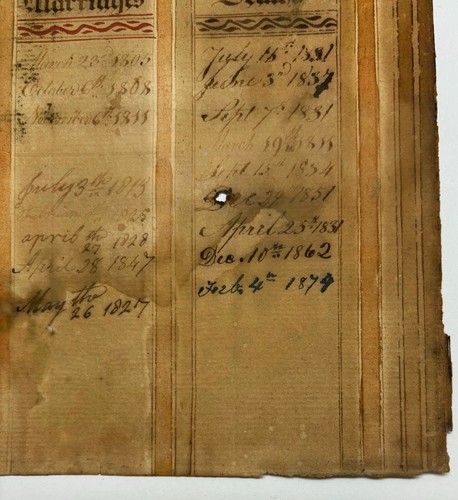 Marriages
March 23d 1805
October 6th 1808
November 6th 1811
July 3th 1813
1825
april th 27 1828
April 28 1847
May the 26 1827
Deaths
July 16th 1831
June 3d 1837
Sept 7th 1831
March 19th 1811
Sept 15th 1834
Dec 29 1851
April 25th 1831
Dec. 10th 1862
Feb. 4th 1879